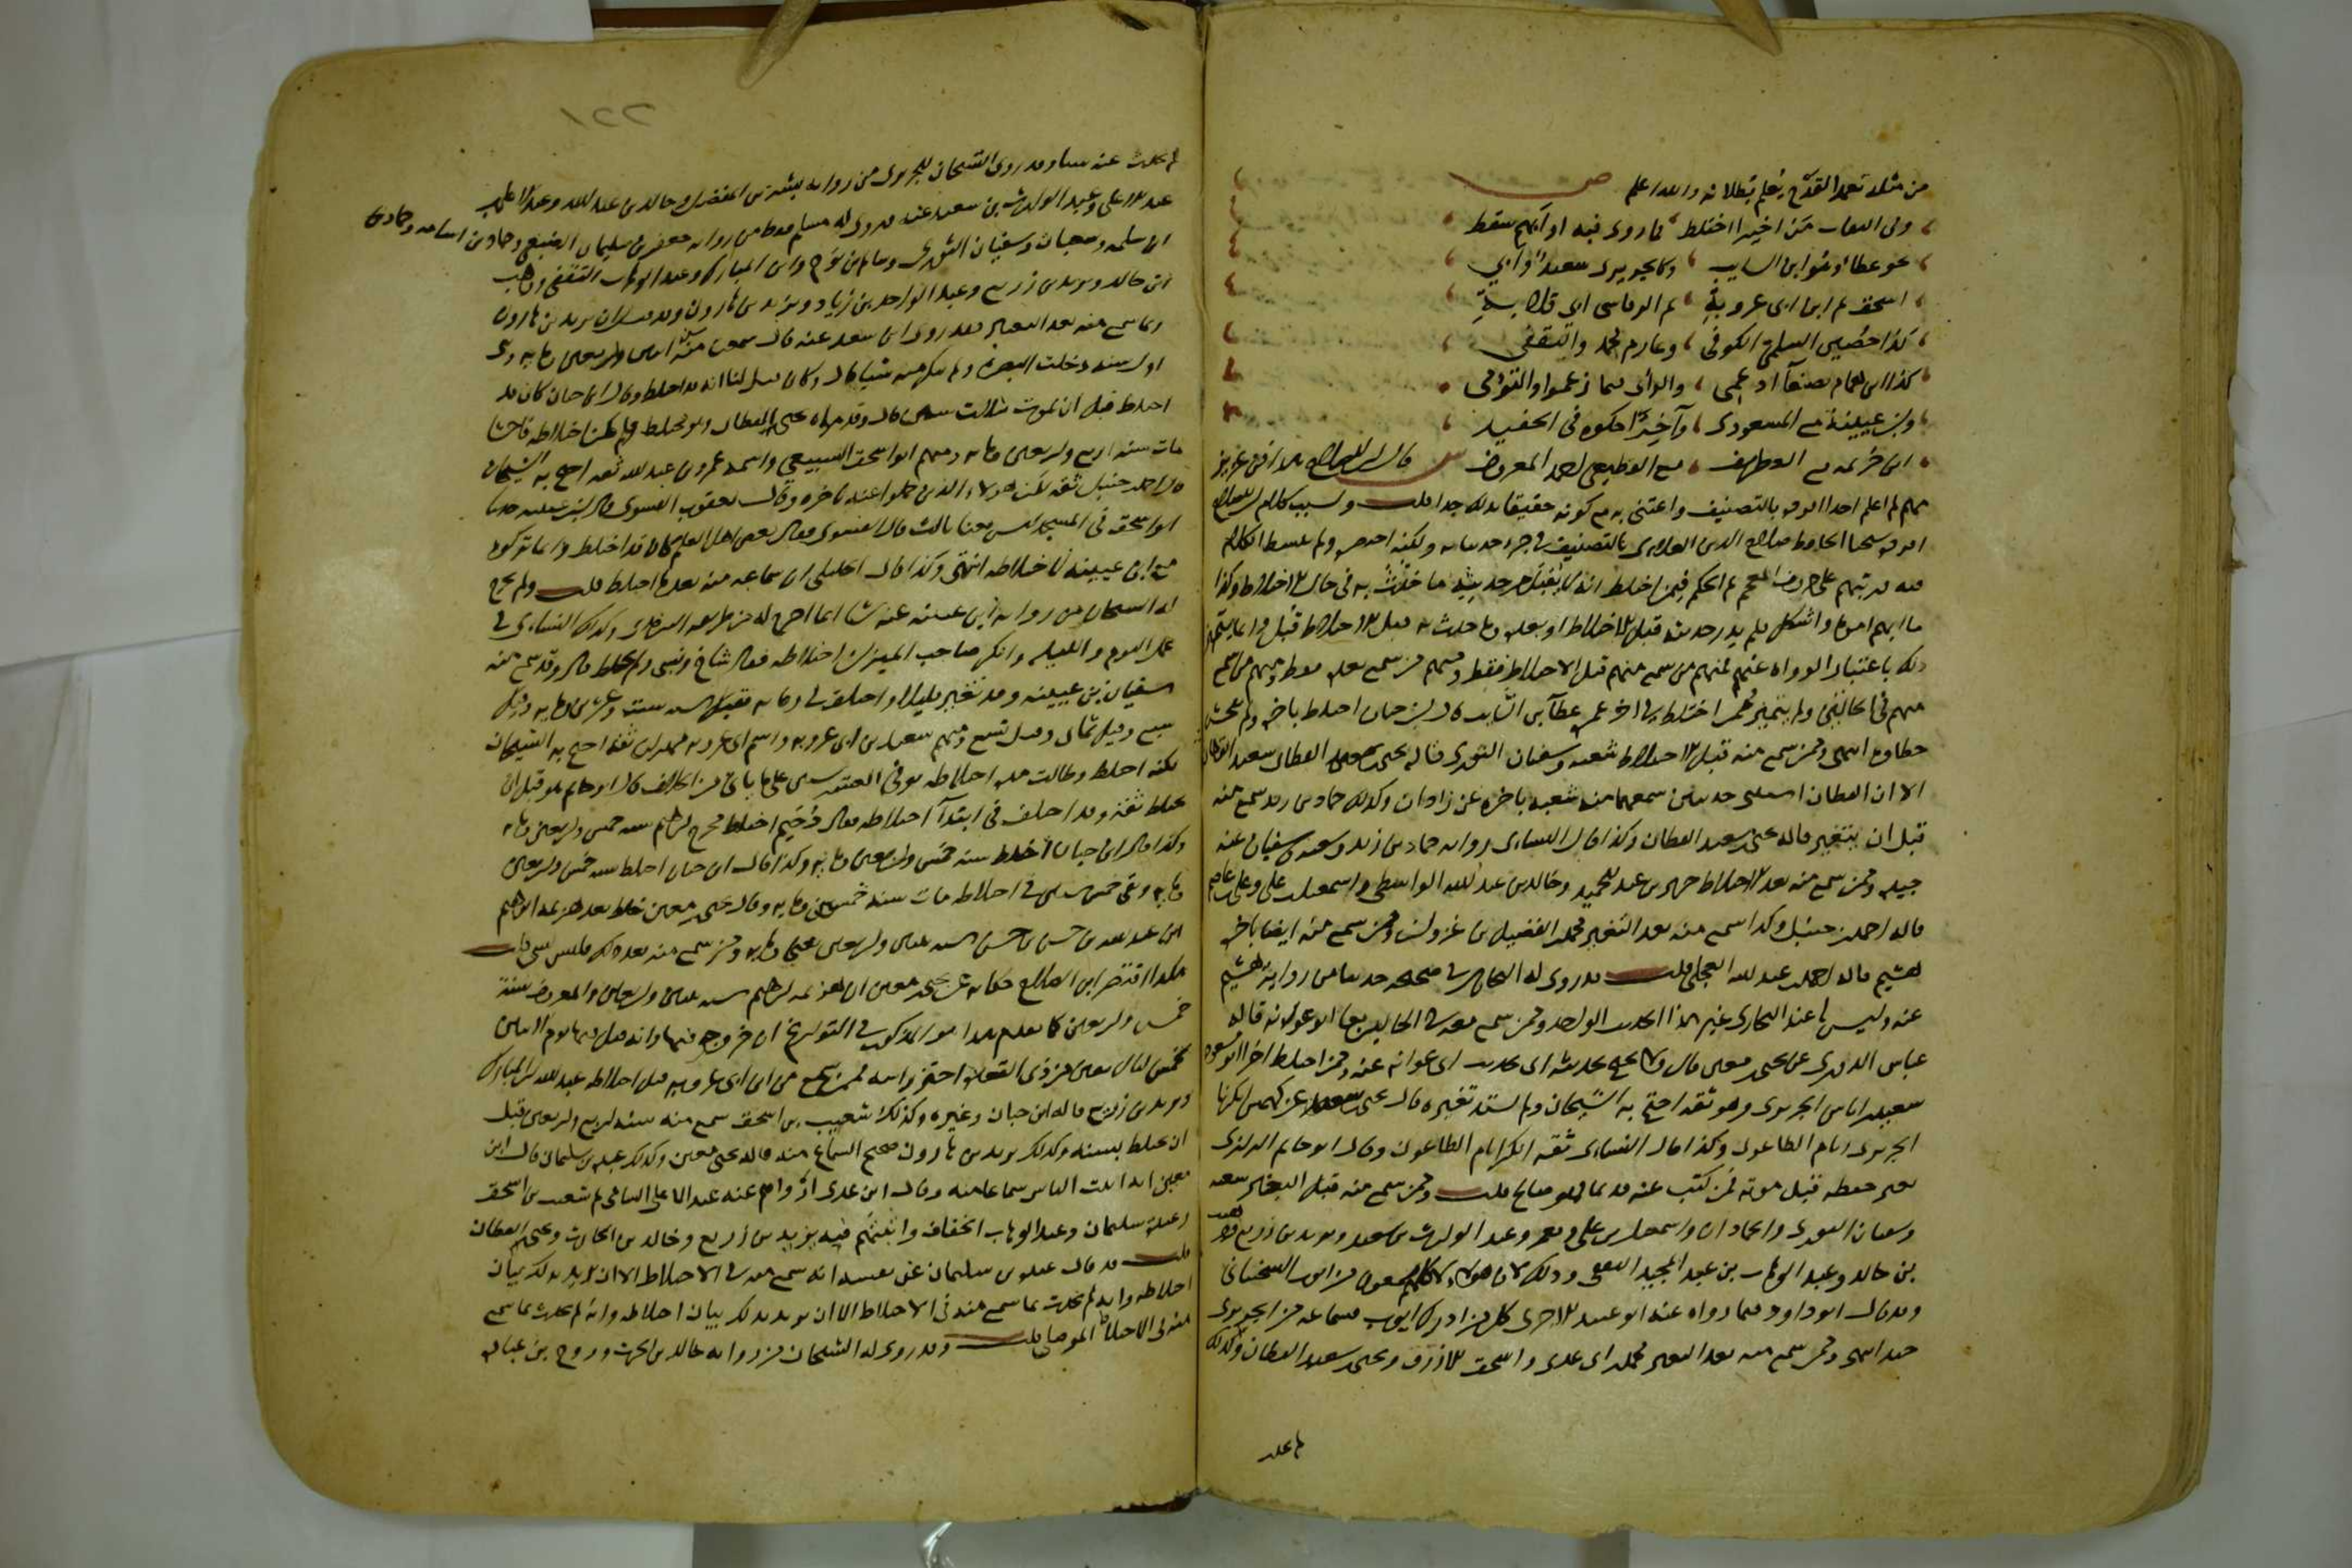 من مثله تعمد القدح يعلم بطلانه والله اعلم ص
وفي الثقات من اخيرا اختلط فما روى فيه او ابهم سقط
نحو عطا وهو ابن السايب وكالجريري سعيد وابي
اسحق ثم ابن ابي عروبة ثم الرقاشي ابي قلابة
كذا حصين السلمي الكوفي وعارم محمد والثقفي
كذا ابن همام بصنعا اذ عمي والرأي فيما زعموا والتوأمي
وابن عيينة مع المسعودي وآخرا حكوه في الحفيد
ابن خزيمة مع الغطريف مع القطيعي احمد المعروف ش قال ابن الصلاح هذا فن عزيز
مهم لم اعلم احدا افرده بالتصنيف واعتنى به مع كونه حقيقا بذلك جدا قلت وبسبب كلام ابن الصلاح
افرده شيخنا الحافظ صلاح الدين العلائي بالتصنيف في جزء حدثنا به ولكنه اختصره ولم يبسط الكلام
فيه ورتبهم على حروف المعجم ثم الحكم فيمن اختلط انه لا يقبل من حديثه ما حدث به في حال الاختلاط وكذا
ما ابهم امره واشكل فلم يدر حدث به قبل الاختلاط او بعده وما حدث به قبل الاختلاط قبل وانما يتميز
ذلك باعتبار الرواة عنهم فمنهم من سمع منهم قبل الاختلاط فقط ومنهم من سمع بعده فقط ومنهم من سمع
منهم في الحالين ولم يتميز فممن اختلط في اخر عمره عطآ بن السايب قال ابن حبان اختلط باخره ولم يفحش
خطاوه انتهى وممن سمع منه قبل الاختلاط شعبة وسفيان الثوري قاله يحيى بن معين القطان سعيد القطان
الا ان القطان استثنى حديثين سمعهما منه شعبة باخره عن زاذان وكذلك حماد بن زيد سمع منه
قبل ان يتغير قاله يحيى بن سعيد القطان وكذا قال النسائي رواية حماد بن زيد وشعبة وسفيان عنه
جيدة وممن سمع منه بعد الاختلاط جرير بن عبد الحميد وخالد بن عبد الله الواسطي واسمعيل بن علية وعلي بن عاصم
قاله احمد بن حنبل وكذا سمع منه بعد التغير محمد بن الفضيل بن غزوان وممن سمع منه ايضا باخره
هشيم قاله احمد بن عبد الله العجلي قلت وقد روى له البخاري في صحيحه حديثا من رواية هشيم
عنه وليس له عند البخاري غير هذا الحديث الواحد وممن سمع منه في الحالين معا ابو عوانة قاله
عباس الدوري عن يحيى بن معين قال ولا يحتج بحديثه اي بحديث ابي عوانة عنه وممن اختلط اخرا ابو مسعود
سعيد بن اياس الجريري وهو ثقة احتج به الشيخان ولم يشتد تغيره قال يحيى بن سعيد عن كهمس انكرنا
الجريري ايام الطاعون وكذا قال النسائي ثقة انكر ايام الطاعون وقال ابو حاتم الرازي
تغير حفظه قبل موته فمن كتب عنه قديما فهو صالح قلت وممن سمع منه قبل التغير شعبة
وسفيان الثوري والحمادان واسمعيل بن علية ومعمر وعبد الوارث بن سعيد ويزيد بن زريع ووهيب
بن خالد وعبد الوهاب بن عبد المجيد الثقفي وذلك لان هولاء كلهم سمعوا من ايوب السختياني
وقد قال ابو داود فيما رواه عنه ابو عبيد الاجري كل من ادرك ايوب فسماعه من الجريري
جيد انتهى وممن سمع منه بعد التغير محمد بن ابي عدي واسحق الازرق ويحيى بن سعيد القطان ولذلك
لم يحدث
١٢٢
لم يحدث عنه شيا وقد روى الشيخان للجريري من رواية بشر بن المفضل وخالد بن عبد الله وعبد الاعلى بن
عبد الاعلى وعبد الوارث بن سعيد عنه وروى له مسلم فقط من رواية جعفر بن سليمان الضبعي وحماد بن اسامة وحماد بن
سلمة وشعبة وسفيان الثوري وسالم بن نوح وابن المبارك وعبد الوهاب الثقفي ووهيب
ابن خالد ويزيد بن زريع وعبد الواحد بن زياد ويزيد بن هارون وقد قيل ان يزيد بن هارون
انما سمع منه بعد التغير فقد روى ابن سعد عنه قال سمعت منه سنة اثنتين واربعين ومايه وهي
اول سنة دخلت البصرة ولم ننكر منه شيا قال وكان قيل لنا انه قد اختلط وقال ابن حبان كان قد
اختلط قبل ان يموت بثلاث سنين قال وقد رآه يحيى القطان وهو مختلط ولم يكن اختلاطه فاحشا
مات سنة اربع واربعين ومايه ومنهم ابو اسحق السبيعي واسمه عمرو بن عبد الله ثقة احتج به الشيخان
قال احمد بن حنبل ثقة لكن هولاء الذين حملوا عنه باخره وقال يعقوب الفسوي قال ابن عيينة حدثنا
ابو اسحق في المسجد ليس معنا ثالث قال الفسوي فقال بعض اهل العلم كان قد اختلط وانما تركوه
مع ابن عيينة لاختلاطه انتهى وكذا قال الخليلي ان سماعه منه بعد ما اختلط قلت ولم يخرج
له الشيخان من رواية ابن عيينة عنه شيا انما اخرج له من طريقه الترمذي وكذلك النسائي في
عمل اليوم والليلة وانكر صاحب الميزان اختلاطه فقال شاخ ونسي ولم يختلط قال وقد سمع منه
سفيان بن عيينة وقد تغير قليلا واختلف في وفاته فقيل سنة ست وعشرين ومايه وقيل
سبع وقيل ثمان وقيل تسع ومنهم سعيد بن ابي عروبة واسم ابي عروبة مهران ثقة احتج به الشيخان
لكنه اختلط وطالت مدة اختلاطه فوق العشر سنين على ما ياتي من الخلاف قال ابو حاتم هو قبل ان
يختلط ثقة وقد اختلف في ابتدآ اختلاطه فقال دحيم اختلط مخرج ابراهيم سنة خمس واربعين ومايه
وكذا قال ابن حبان اختلط سنة خمس واربعين ومايه وكذا قال ابن حبان اختلط سنة خمس واربعين
ومايه وبقي خمس سنين في اختلاطه مات سنة خمسين ومايه وقال يحيى بن معين خلط بعد هزيمة ابراهيم
ابن عبد الله بن حسن بن حسن سنة ثنتين واربعين يعني ومايه ومن سمع منه بعد ذلك فليس بشي قلت
هكذا اقتصر ابن الصلاح حكاية عن يحيى بن معين ان هزيمة ابراهيم سنة ثنتين واربعين والمعروف سنة
خمس واربعين كما تقدم هذا هو المذكور في التواريخ ان خروجه فيها وانه قتل فيها يوم الاثنين
لخمس ليال بقين من ذي القعدة احتز راسه فممن سمع من ابن ابي عروبة قبل اختلاطه عبد الله بن المبارك
ويزيد بن زريع قاله ابن حبان وغيره وكذلك شعيب بن اسحق سمع منه سنة اربع واربعين قبل
ان يختلط بسنة وكذلك يزيد بن هارون صحيح السماع منه قاله يحيى بن معين وكذلك عبدة بن سليمان قال ابن
معين انه اثبت الناس سماعا منه وقال ابن عدي ارواهم عنه عبد الاعلى السامي ثم شعيب بن اسحق
وعبدة بن سليمان وعبد الوهاب الخفاف واثبتهم فيه يزيد بن زريع وخالد بن الحارث ويحيى القطان
قلت قد قال عبدة بن سليمان عن نفسه انه سمع منه في الاختلاط الا ان يريد بذلك بيان
اختلاطه وانه لم يحدث بما سمع منه في الاختلاط الا ان يريد بذلك بيان اختلاطه وانه لم يحدث بما سمع
منه في الاختلاط قلت وقد روى له الشيخان من رواية خالد بن الحرث وروح بن عبادة